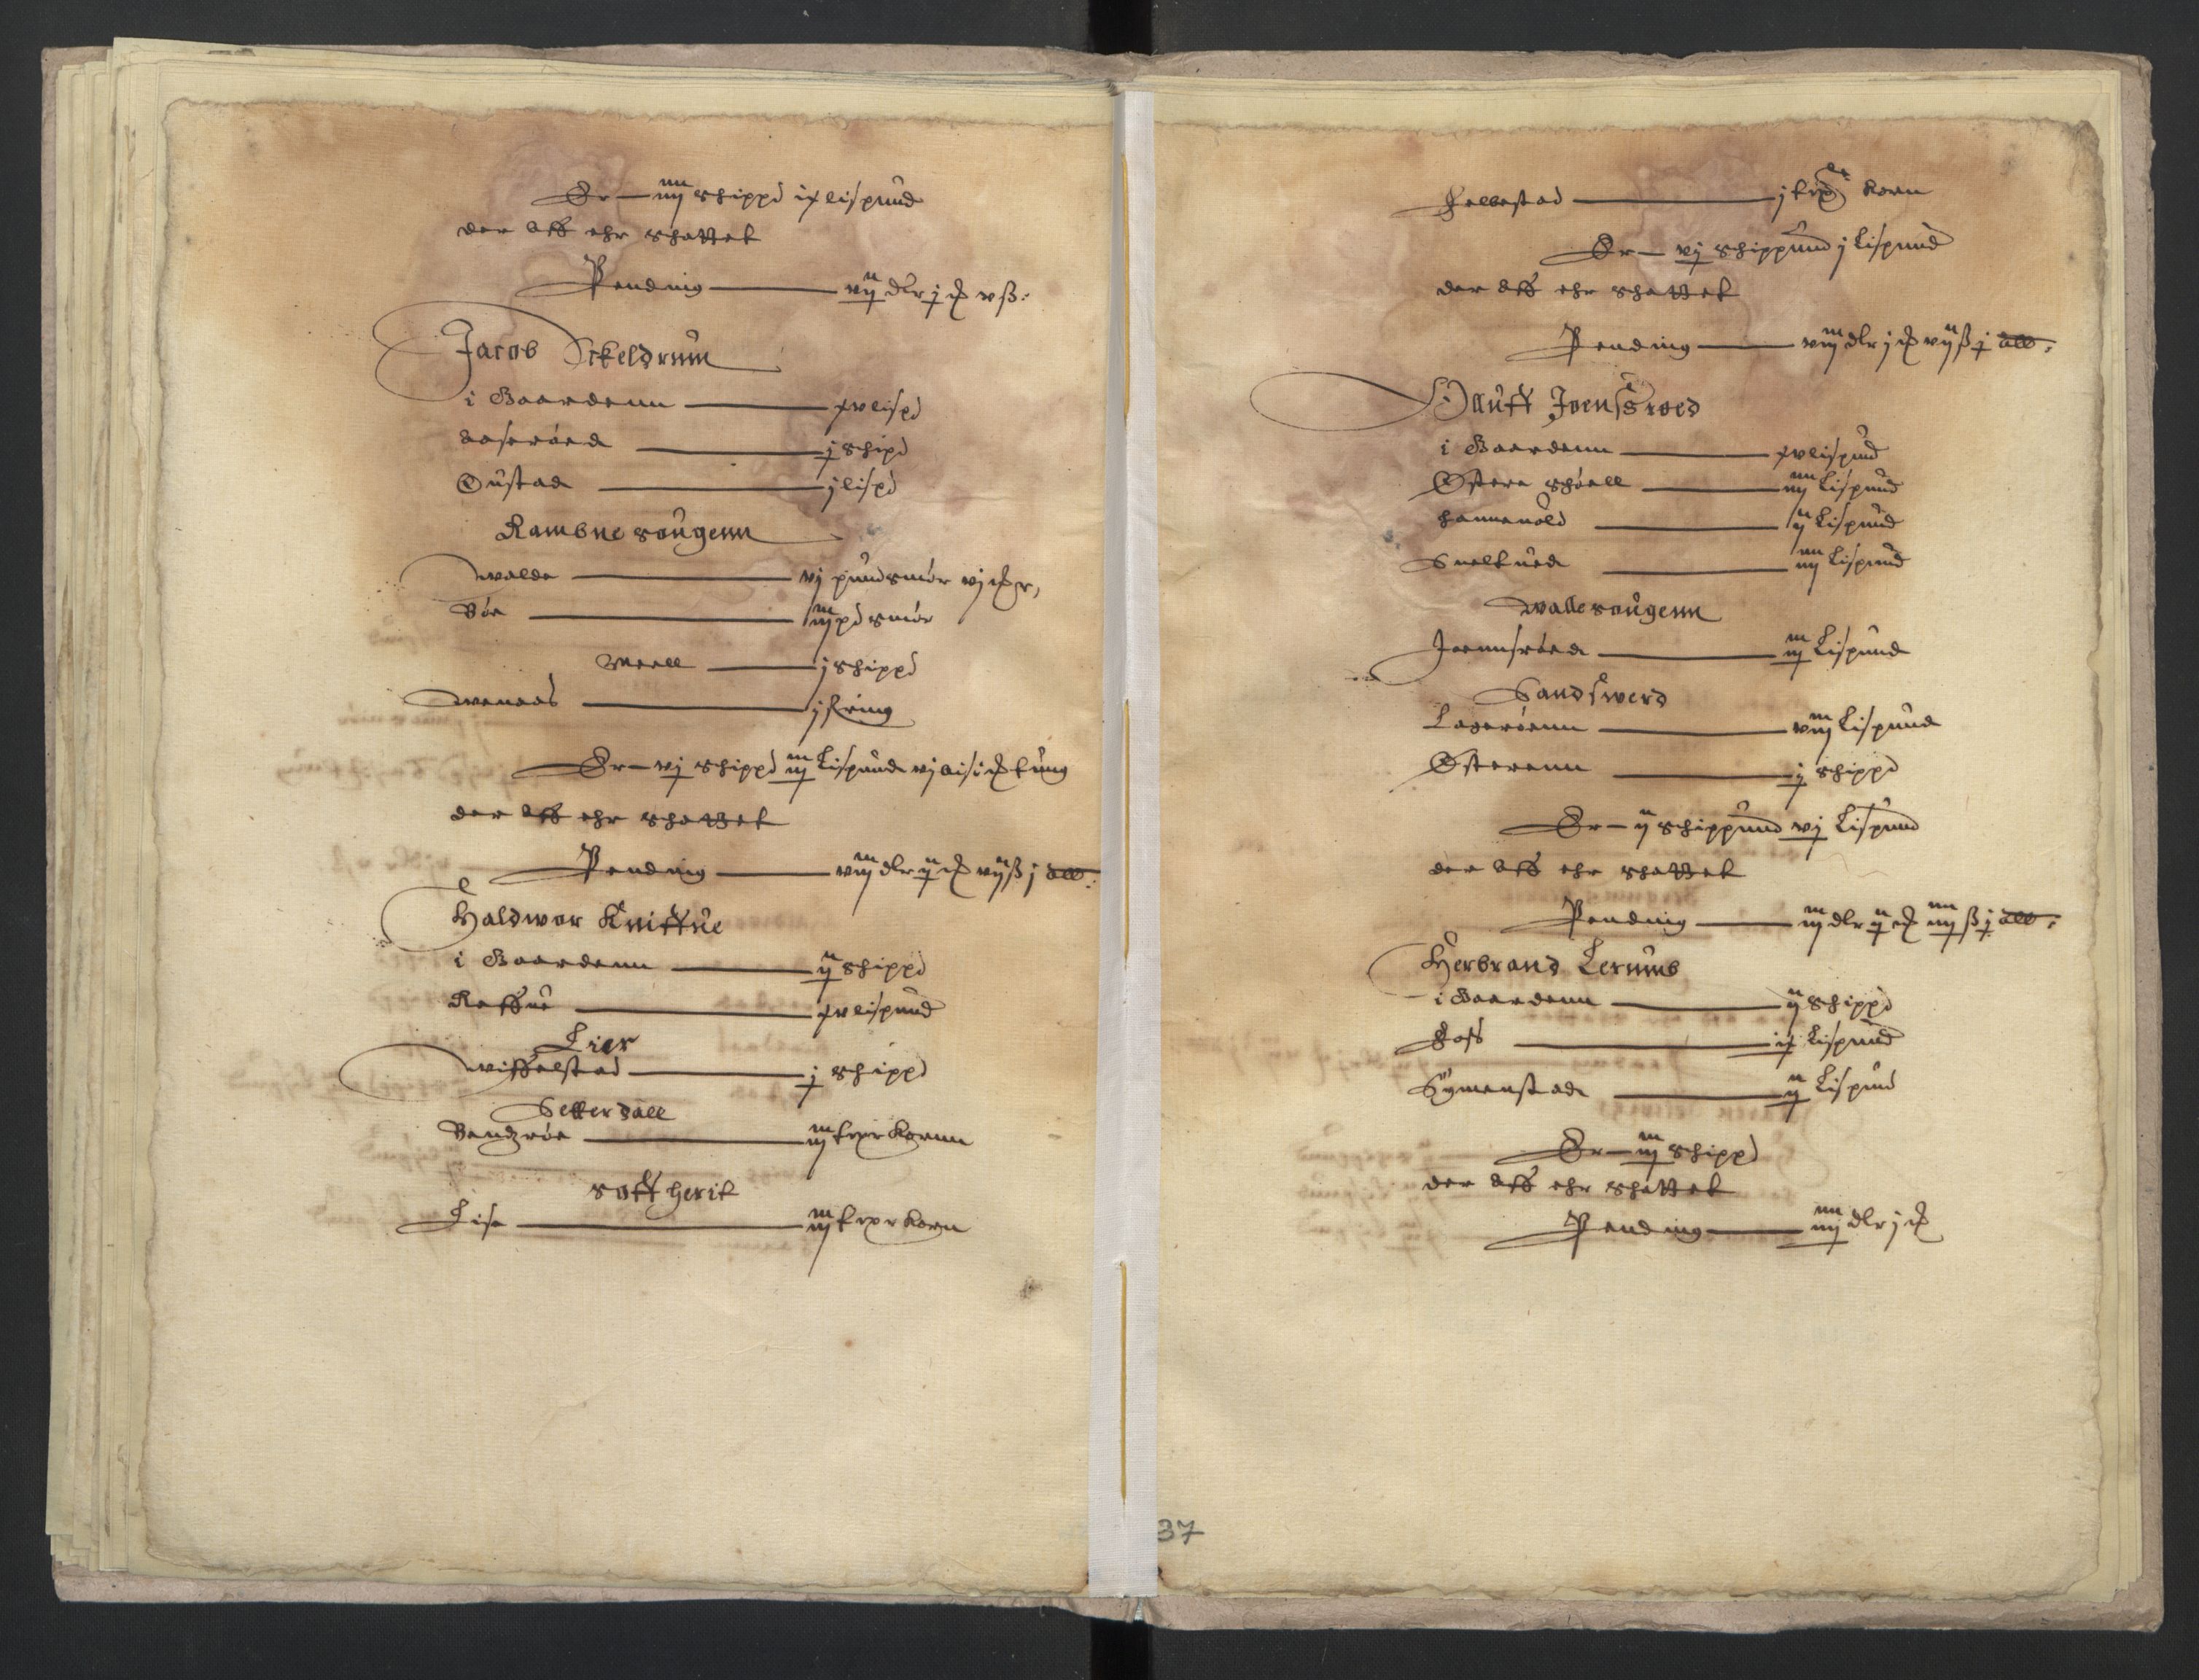 Er — iiij schippd ix lispund
der aff ehr schattet
Pending — vij dlr j ort v ß:
Jacob Skeldrum
i Gaardenn — xv lispd
Aaserøed — j schipd
Gustad — j lispd
Ramsne sougenn
walde — vj pund smør vj
Bøe — iij pd smør
Meell — j schippd
weneas — j
Er — vj schippd iij Lispunde vj tung
der aff ehr schattet
Pending — viij dlr ij ort vij ß j alb:
Haldwor Knittue
i Gaardenn — ij schippd
Raffue — xv lispund
Lier
wiffelstad — j schippd
Setterdall
Bendzrøe — iij kornn
soffherit
Lise — iij korn
Fellestad — j korn
Er — vj schippund j Lispund
der aff ehr schattet
Pending — viij dlr j ort vij ß j alb:
Oluff Joensröed
i Gaardenn — xv lispund
Østere schøell — iiij Lispund
hanneuold — ij Lispund
Sueltued — iiij Lispund
walle sougenn
Joennsrøed — iij Lispund
Sandswerd
Lagerøenn — viij Lispund
Østerenn — j schippd
Er — ij schippund vj Lispund
der aff ehr schattet
Pending — iij dlr ij ort iiij ß j alb:
Herbrand Lerumb
i Gaardenn — ij schippd
Foss — ix Lispund
Symenstade — ij Lispund
Er — iij schippd
der aff ehr schattet
Pending — iiij dlr j ort
37